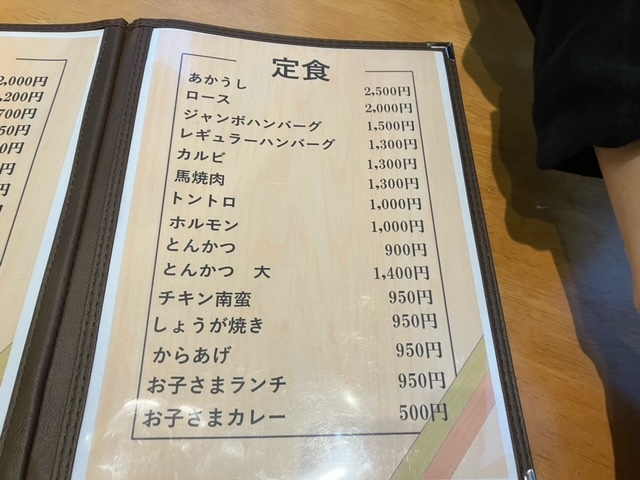 2,000円
,200円
700円
50円
0円
円
円
定食
あかうし 2,500円
ロース 2,000円
ジャンボハンバーグ 1,500円
レギュラーハンバーグ 1,300円
カルビ 1,300円
馬焼肉 1,300円
トントロ 1,000円
ホルモン 1,000円
とんかつ 900円
とんかつ 大 1,400円
チキン南蛮 950円
しょうが焼き 950円
からあげ 950円
お子さまランチ 950円
お子さまカレー 500円